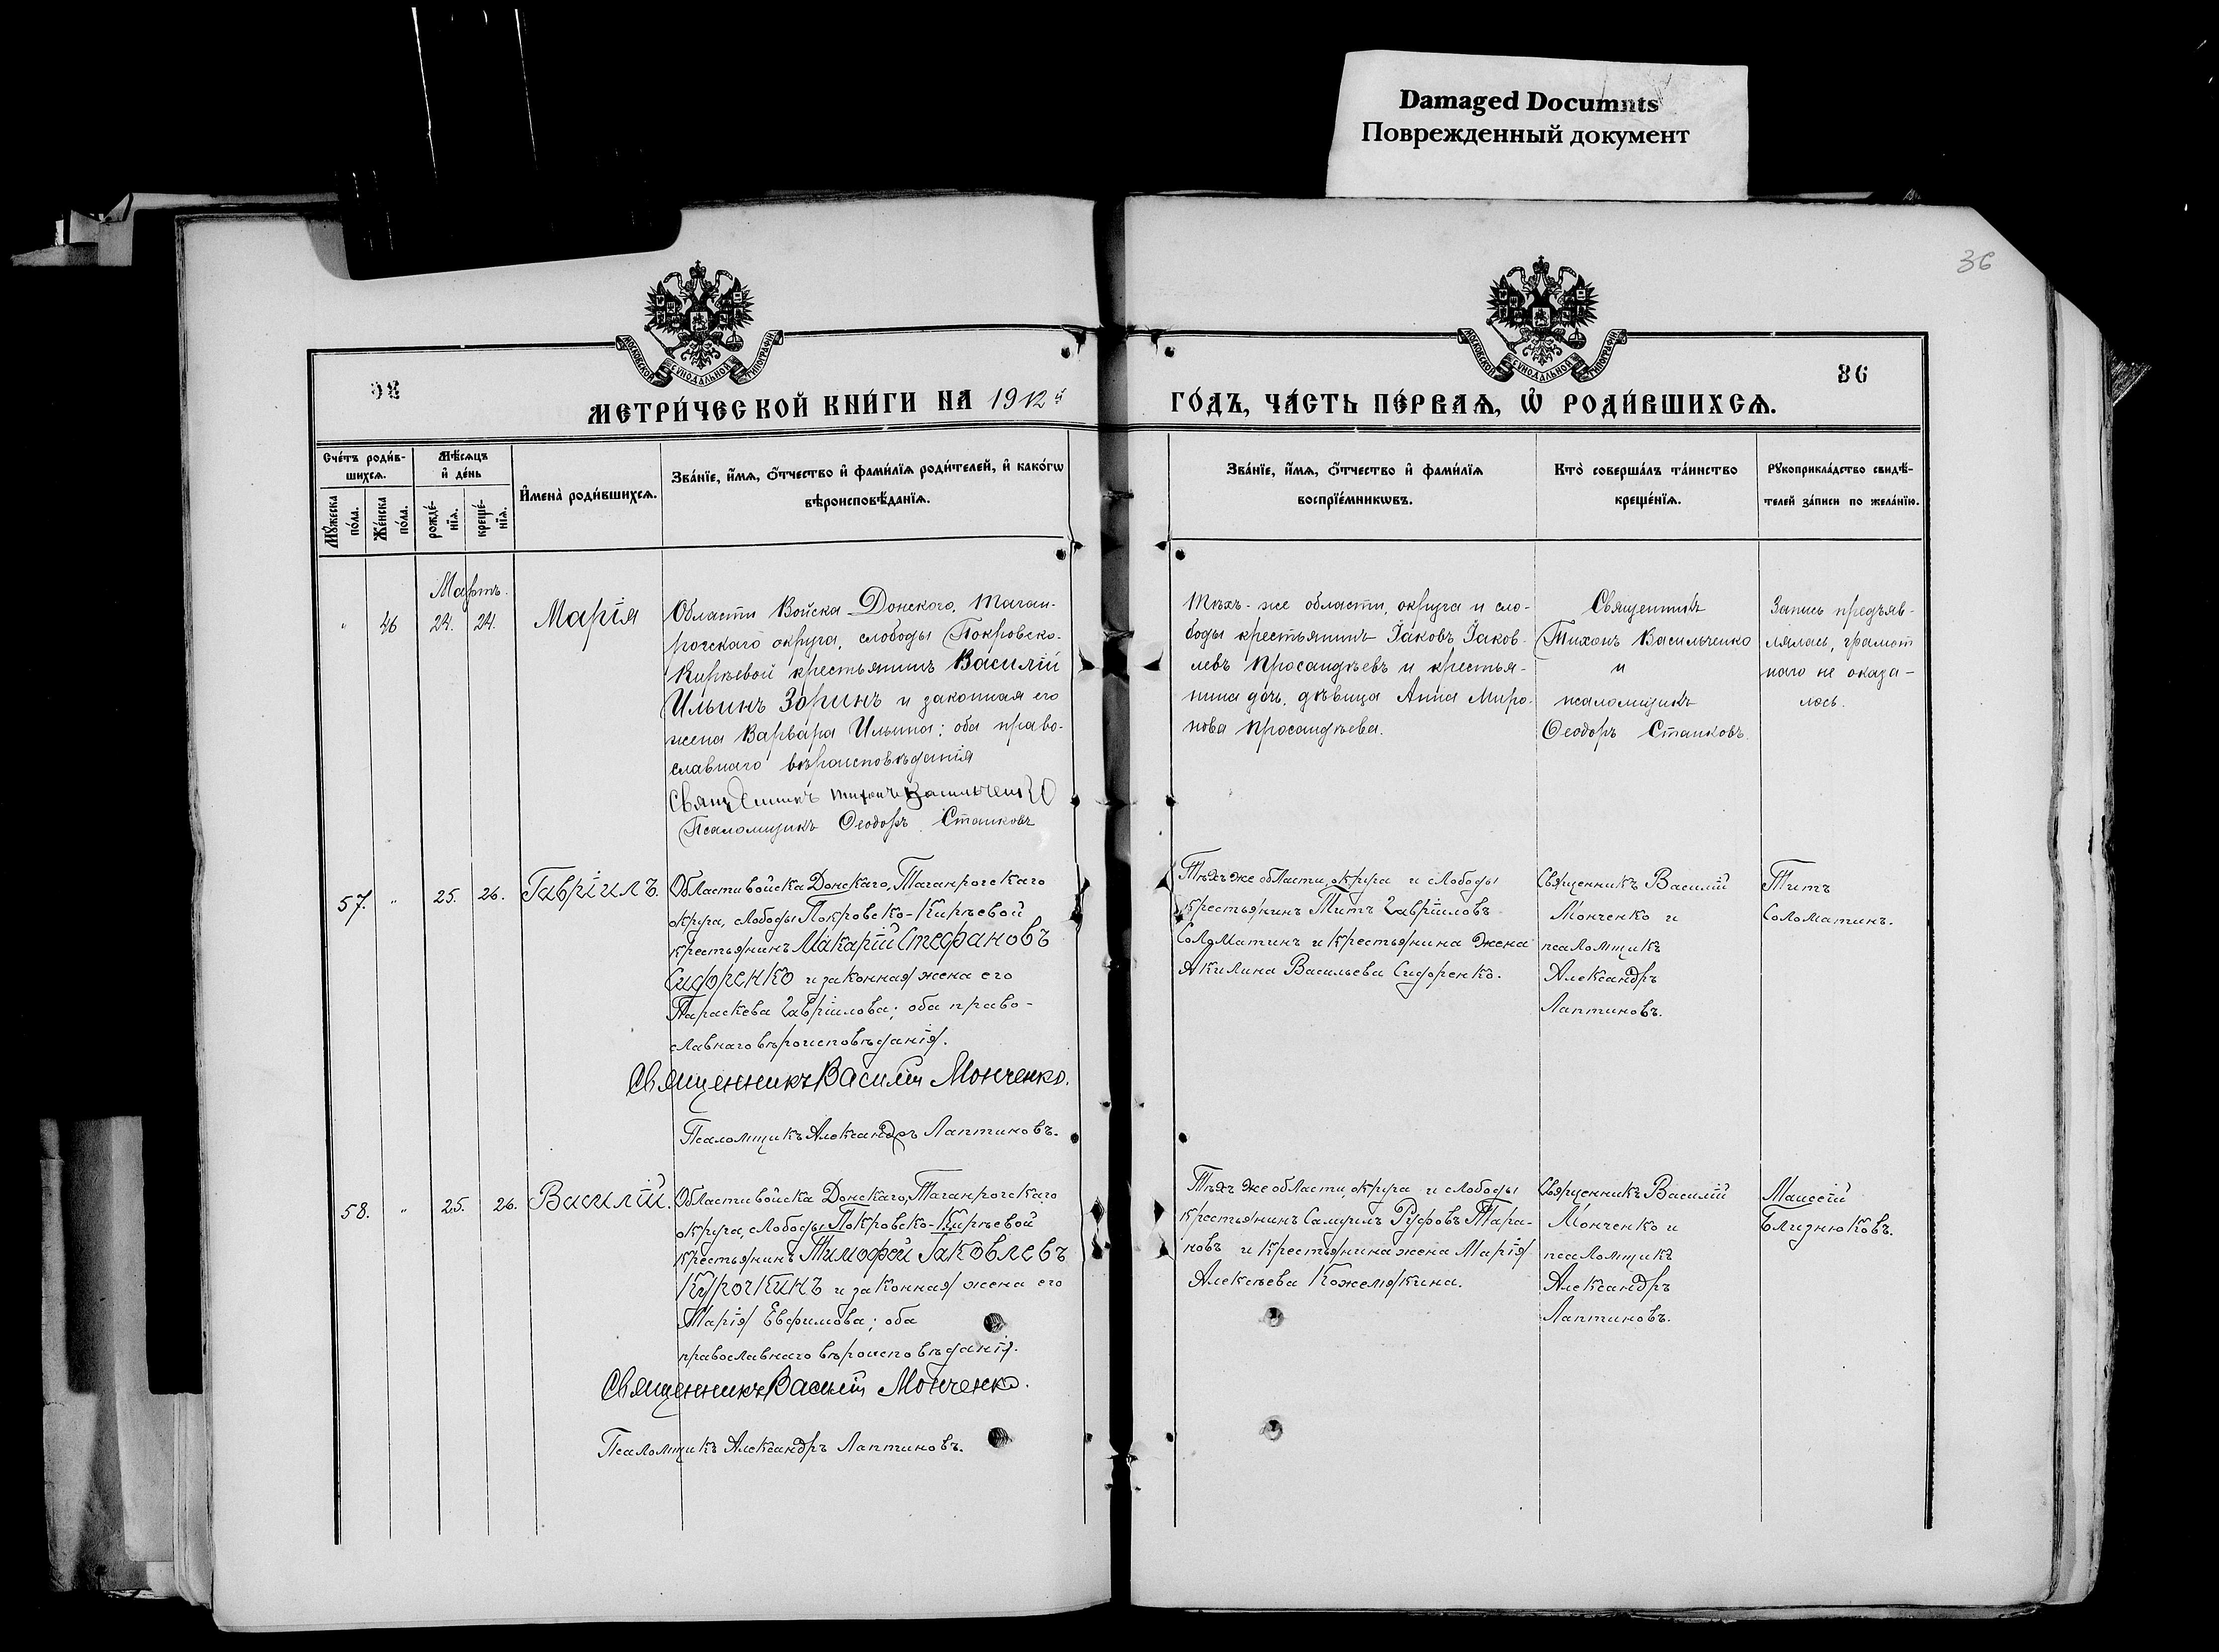 Damaged Documnts
Поврежденный документ
36
МОСКОВСКОЙ СѴНОДАЛЬНОЙ ТИПОГРАФІИ
МОСКОВСКОЙ СѴНОДАЛЬНОЙ ТИПОГРАФІИ
86
МЕТРИ́ЧЕСКОЙ КНИ́ГИ НА 1912 й
ГО́ДЪ, ЧА́СТЬ ПЕ́РВАѦ, Ѡ РОДИ́ВШИХСѦ.
Сче́тъ роди́в-
шихсѧ.
Мѣ́сѧцъ
и де́нь
Мꙋ́жеска
по́ла.
Же́нска
по́ла.
рожде́-
нїѧ.
креще́-
нїѧ.
Имена̀ роди́вшихсѧ.
Зва́нїе, и́мѧ, ѻ́тчество и фами́лїѧ роди́телей, и како́гѡ
вѣроисповѣ́данїѧ.
Зва́нїе, и́мѧ, ѻ́тчество и фами́лїѧ
воспрїе́мникѡвъ.
Кто̀ соверша́лъ та́инство
креще́нїѧ.
Рꙋкоприкла́дство свидѣ́-
телей за́писи по жела́нїю.
Мартъ.
" 46 24. 24. Марія
Области Войска Донского, Таган-
рогскаго округа, слободы Покровско-
Кирѣевой крестьянинъ Василій
Ильинъ Зоринъ и законная его
жена Варвара Ильина; оба право-
славнаго вѣроисповѣданія
Священникъ Тихонъ Васильченко
Псаломщикъ Ѳеодоръ Станковъ
Тѣхъ-же области, округа и сло-
боды крестьянинъ Іаковъ Іаков-
левъ Просандѣевъ и крестья-
нина дочь, дѣвица Анна Миро-
нова Просандѣева.
Священникъ
Тихонъ Васильченко
и
псаломщикъ
Ѳеодоръ Станковъ.
Запись предъяв-
лялась, грамот
наго не оказа-
лось.
57. " 25. 26. Гавріилъ.
Области войска Донскаго, Таганрогскаго
округа, слободы Покровско-Кирѣевой
крестьянинъ Макарій Стефановъ
Сидоренко и законная жена его
Параскева Гавріилова; оба право-
славнаго вѣроисповѣданія.
Священникъ Василій Монченко.
Псаломщикъ Александръ Лаптиновъ.
Тѣхъ же области, округа и слободы
крестьянинъ Титъ Гавріиловъ
Соломатинъ и крестьянина жена
Акилина Васильева Сидоренко.
Священникъ Василій
Монченко и
псаломщикъ
Александръ
Лаптиновъ.
Титъ
Соломатинъ.
58. " 25. 26. Василій.
Области войска Донскаго, Таганрогскаго
округа, слободы Покровско-Кирѣевой
крестьянинъ Тимофей Іаковлевъ
Курочкинъ и законная жена его
Марія Евфимова; оба
православнаго вѣроисповѣданія.
Священникъ Василій Монченко.
Псаломщикъ Александръ Лаптиновъ.
Тѣхъ же области, округа и слободы
крестьянинъ Самуилъ Руфовъ Тара-
новъ и крестьянина жена Марія
Алексѣева Кожемякина.
Священникъ Василій
Монченко и
псаломщикъ
Александръ
Лаптиновъ.
Моисей
Близнюковъ.